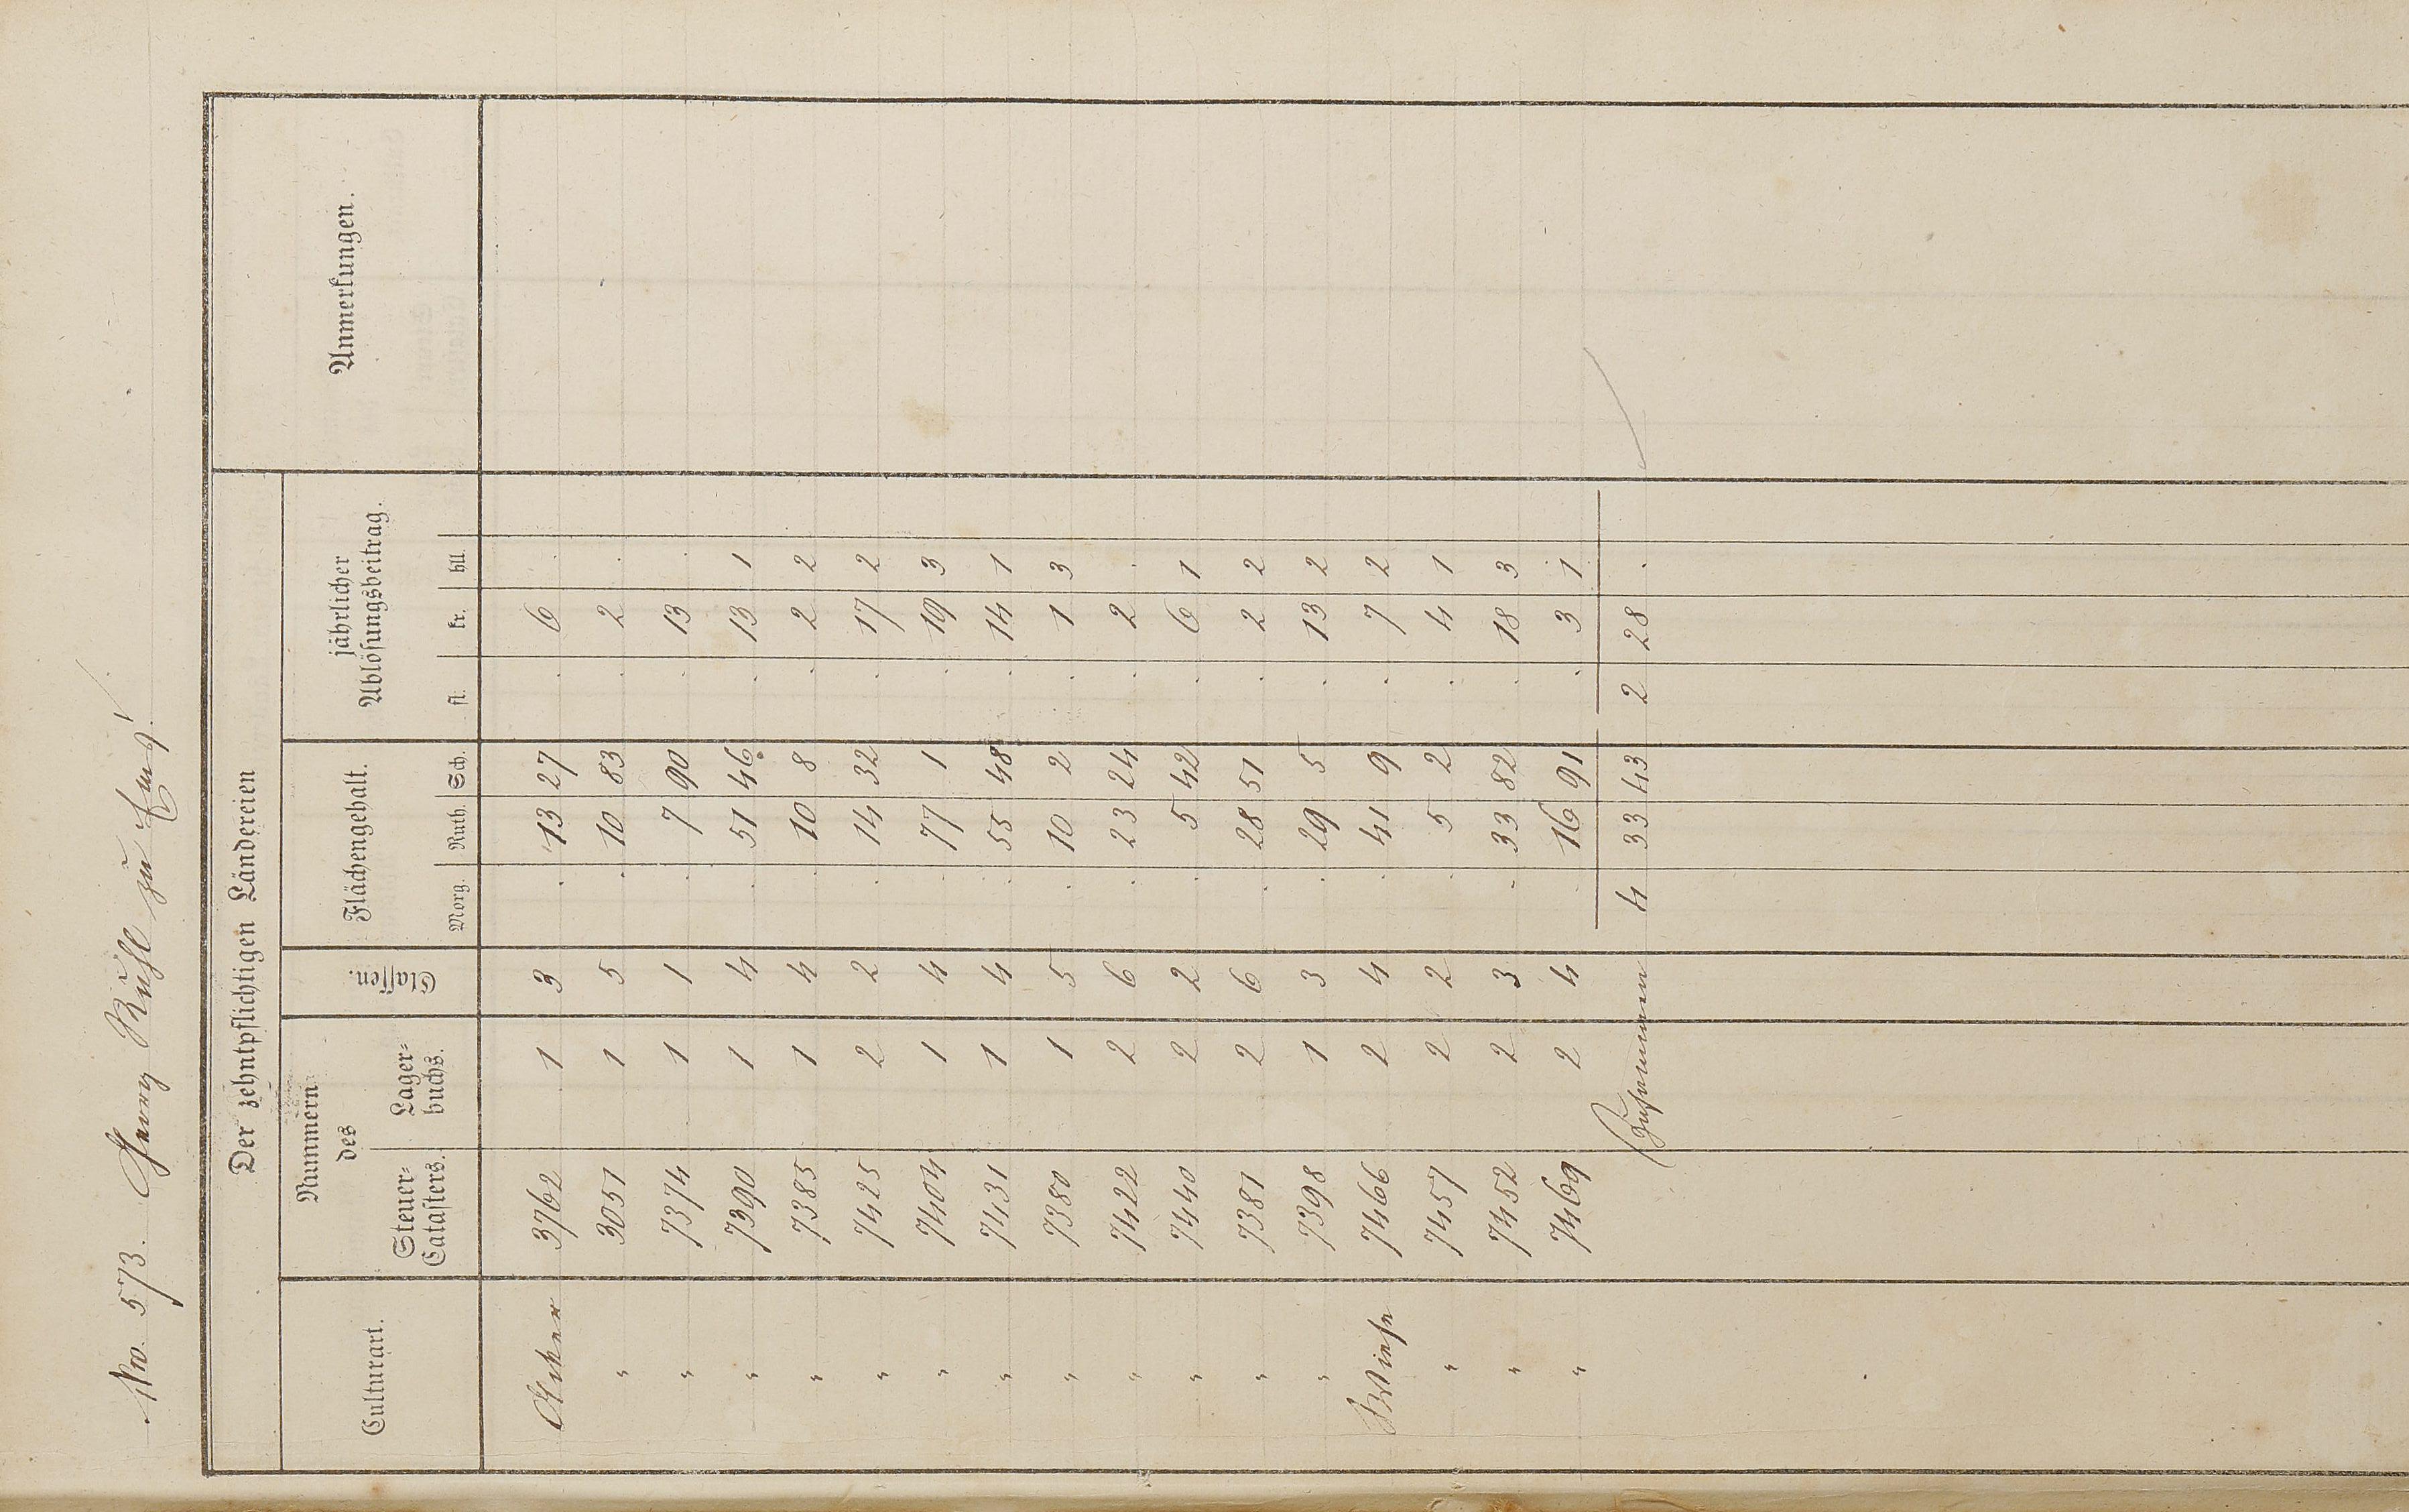 No. 573. Henry Rühl zu Ems.
Der zehntpflichtigen Ländereien
Culturart.
Nummern
des
Steuer=
Catasters.
Lager=
buchs.
Classen
Flächengehalt.
Morg. Ruth. Sch.
jährlicher
Ablösungsbeitrag.
fl. kr. hll.
Anmerkungen.
Acker 3762 1 3 . 13 27 . 6 .
" 3051 1 5 . 10 83 . 2 .
" 7374 1 1 . 7 90 . 13 .
" 7390 1 4 . 51 46 . 13 1
" 7385 1 4 . 10 8 . 2 2
" 7425 2 2 . 14 32 . 17 2
" 7404 1 4 . 77 1 . 19 3
" 7431 1 4 . 55 48 . 14 1
" 7380 1 5 . 10 2 . 1 3
" 7422 2 6 . 23 24 . 2 .
" 7440 2 2 . 5 42 . 6 1
" 7381 2 6 . 28 51 . 2 2
" 7398 1 3 . 29 5 . 13 2
Wiese 7466 2 4 . 41 9 . 7 2
" 7457 2 2 . 5 2 . 4 1
" 7452 2 3 . 33 82 . 18 3
" 7469 2 4 . 16 91 . 3 1
Zusammen 4 33 43 2 28 .